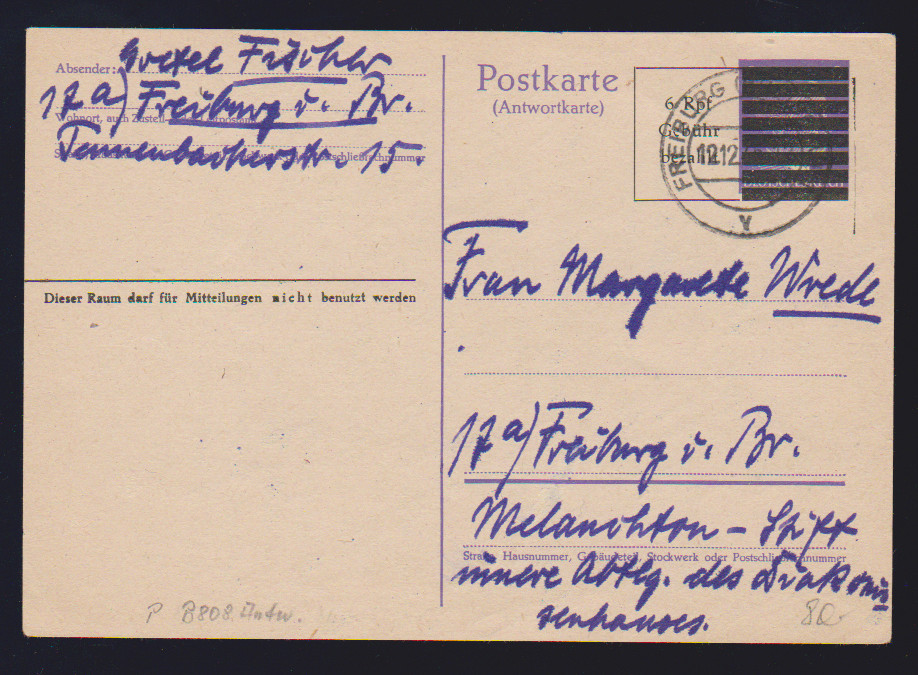 Absender: Gretel Fischer
17a) Freiburg i. Br.
Wohnort, auch Zustell-
Tennenbacherstr. 15.
Dieser Raum darf für Mitteilungen nicht benutzt werden
P B808. Antw.
Postkarte
(Antwortkarte)
6 Rpf
Gebühr
bezahlt
FREIBURG
12.12
Frau Margarete Wrede
17a) Freiburg i. Br.
Melanchton - Stift
Straße, Hausnummer, Gebäudeteil, Stockwerk oder Postschließfachnummer
innere Abtlg. des Diakonis
senhauses.
80.-